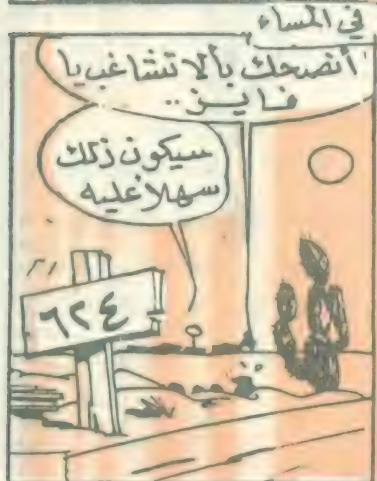 في المساء
أنصحك بألا تشاغب يا
فايز..
سيكون ذلك
سهلاً عليه
٦٢٤